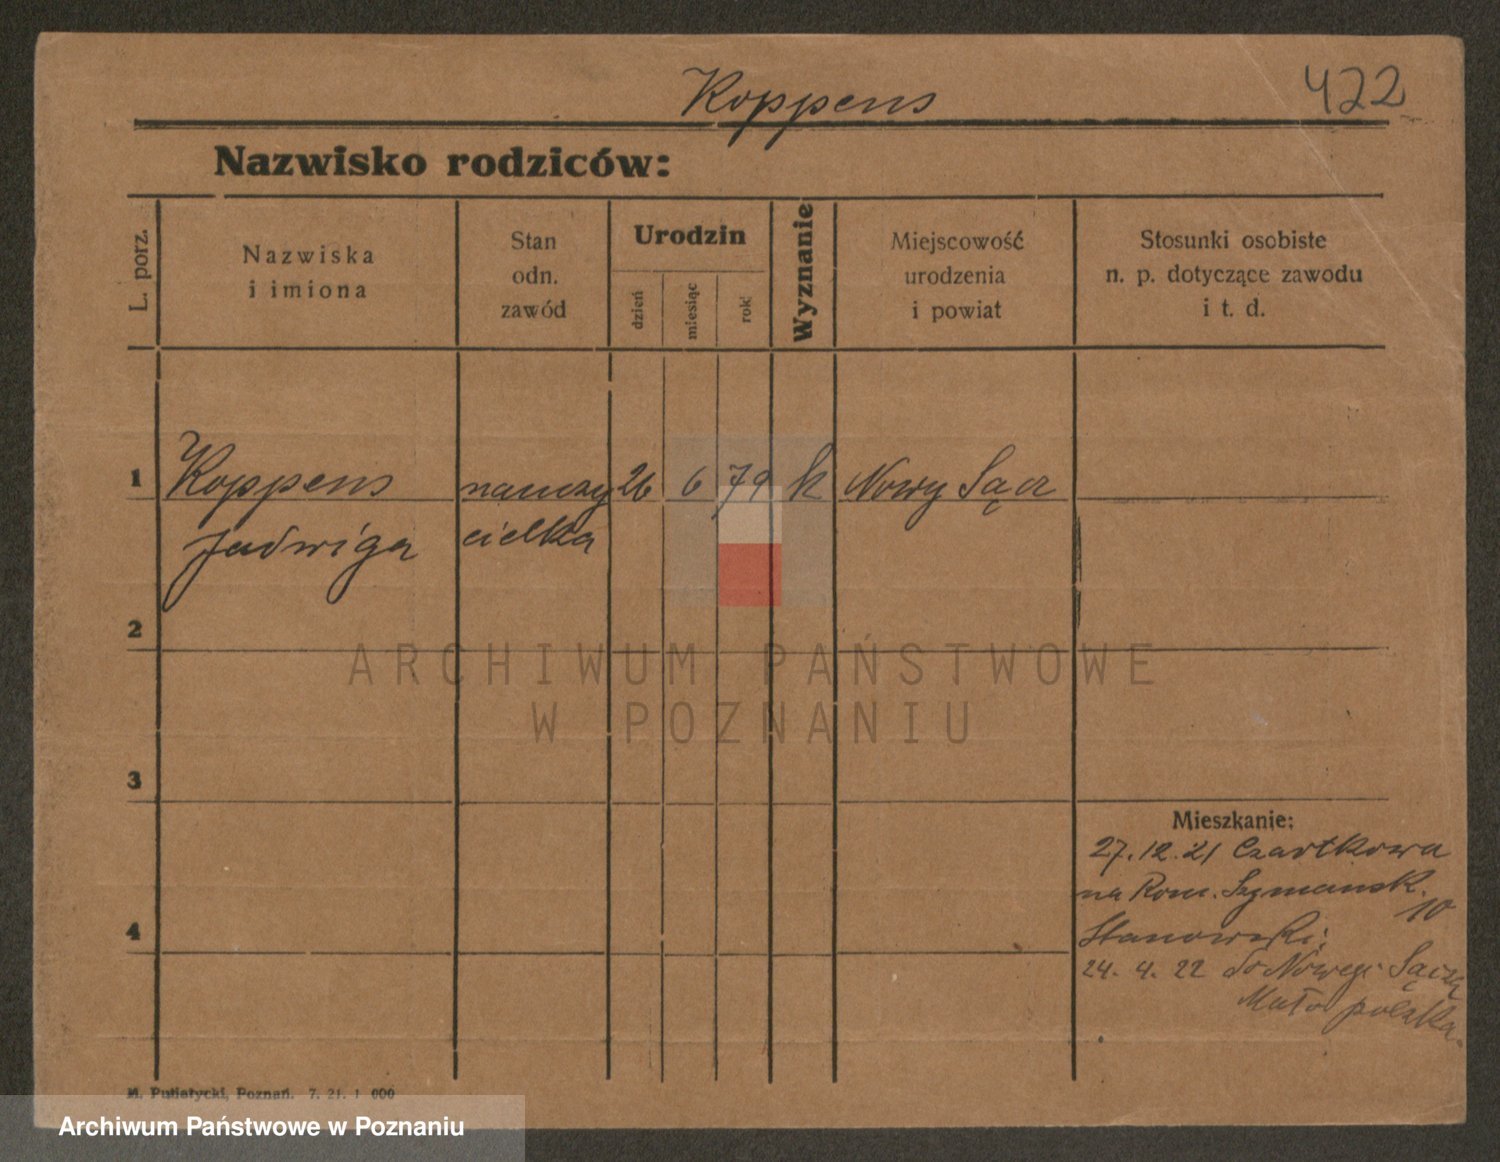 Koppens
422
Nazwisko rodziców:
L. porz.
Nazwiska
i imiona
Stan
odn.
zawód
Urodzin
dzień
miesiąc
rok
Wyznanie
Miejscowość
urodzenia
i powiat
Stosunki osobiste
n. p. dotyczące zawodu
i t. d.
1
Koppens
nauczy
26
6
79
k
Nowy Sącz
Jadwiga
cielka
2
ARCHIWUM PAŃSTWOWE
W POZNANIU
3
Mieszkanie:
27.12.21 Czartkowa
na Rom. Szymańsk.
10
4
Stanowski;
24. 4. 22 do Nowego Sącza
Małopolska.
M. Putiatycki, Poznań. 7. 21. 1 000
Archiwum Państwowe w Poznaniu